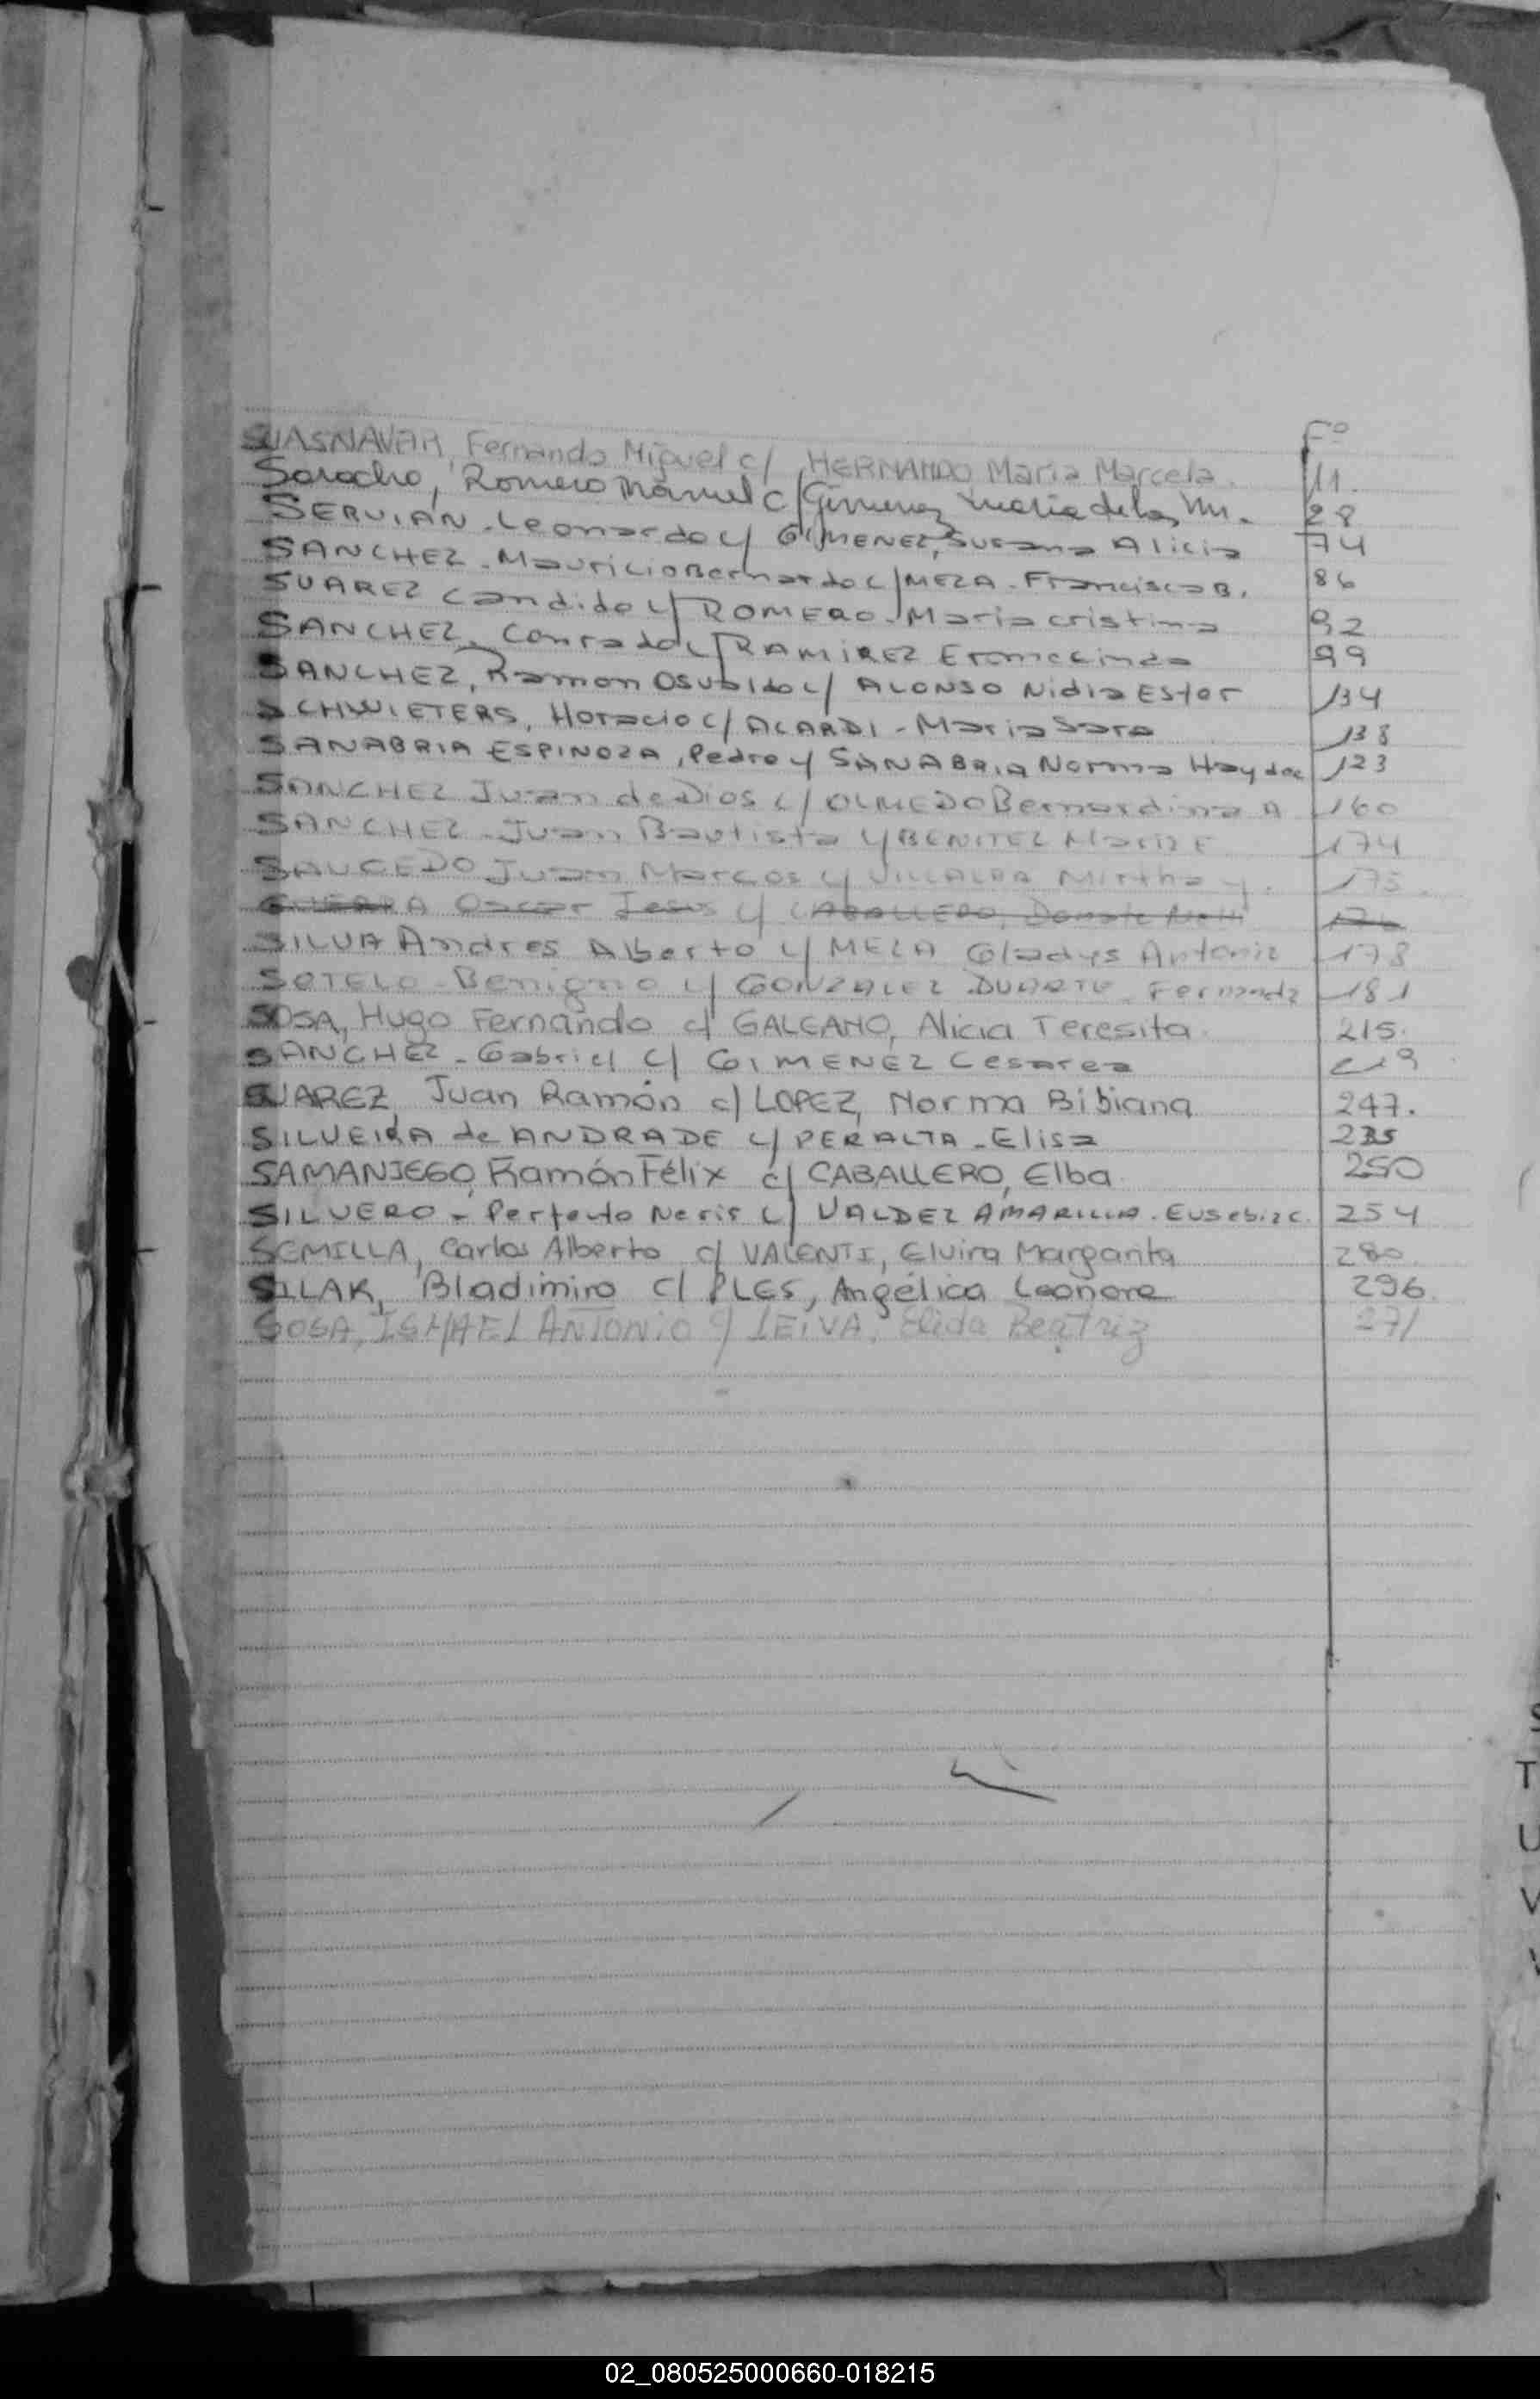 Fº
SUASNAVAR, Fernando Miguel c/ HERNANDO Maria Marcela. 11.
Saracho, Romero Manuel c/ Gimenez Maria de las M. 28
SERVIAN - Leonardo c/ GIMENEZ, Susana Alicia 74
SANCHEZ - Mauricio Bernardo c/ MEZA - Francisca B. 86
SUAREZ Candido c/ ROMERO - Maria cristina 92
SANCHEZ, Conrado c/ RAMIREZ 99
SANCHEZ, Ramon Osvaldo c/ ALONSO Nidia Ester 134
SCHWIETERS, Horacio c/ ACARDI - Maria Sara 138
SANABRIA ESPINOZA, Pedro c/ SANABRIA Norma Haydee 123
SANCHEZ Juan de Dios c/ OLMEDO Bernardina A 160
SANCHEZ - Juan Bautista c/ BENITEZ Maria E 174
SAUCEDO Juan Marcos c/ VILLALBA Mirtha y. 175.
GUERRA Oscar Jesus c/ CABALLERO,
SILVA Andres Alberto c/ MEZA Gladys Antonia 178
SOTELO - Benigno c/ GONZALEZ DUARTE - Fernanda 181
SOSA, Hugo Fernando c/ GALEANO, Alicia Teresita. 215.
SANCHEZ - Gabriel c/ GIMENEZ Cesarea 219
SUAREZ, Juan Ramón c/ LOPEZ, Norma Bibiana 247.
SILVEIRA de ANDRADE c/ PERALTA - Elisa 235
SAMANIEGO, Ramón Félix c/ CABALLERO, Elba 250
SILVERO - Perfecto Neris c/ VALDEZ AMARILLA - Eusebia c. 254
SEMILLA, Carlos Alberto c/ VALENTI, Elvira Margarita 280
SILAK, Bladimiro c/ PLES, Angélica Leonora 296.
SOSA, ISMAEL ANTONIO c/ LEIVA, Elida Beatriz 271
T
U
V
02_080525000660-018215